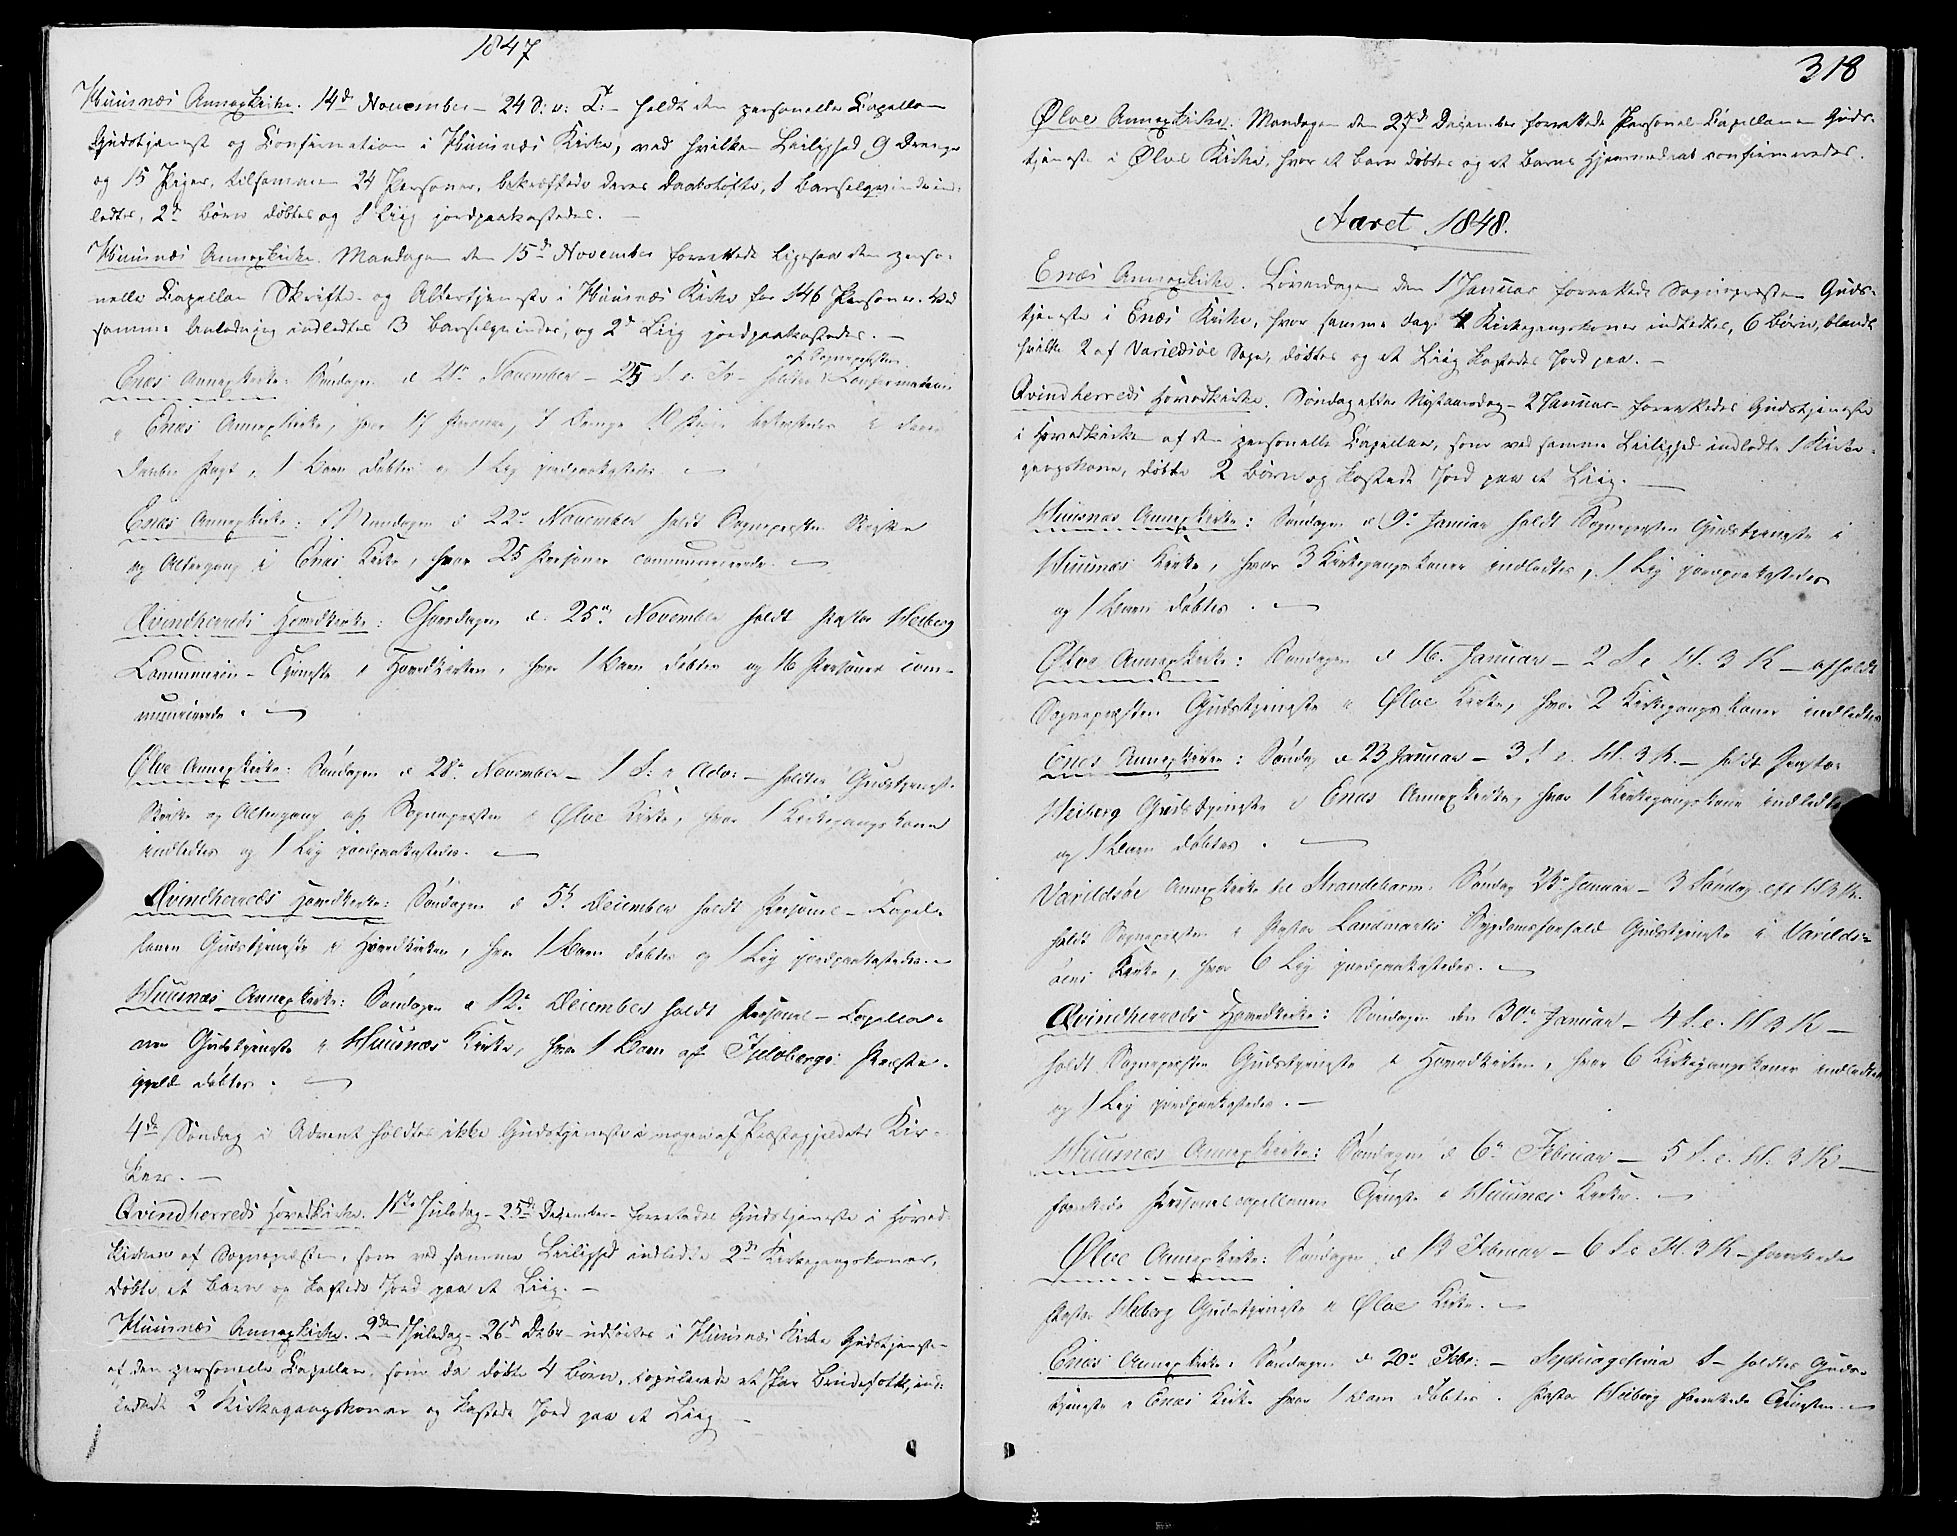 1847
Huusnæs Annexkirke. 14d November – 24 S: e: Tr – holdt den personelle Capellan
Gudstjeneste og Confirmation i Huusnæs Kirke, ved hvilken Leilighed 9 Drenge
og 15 Piger, tilsammen 24 Personer, bekræftede deres Daabsløfte, 1 Barselqvinde ind-
ledtes, 2de Børn døbtes og 1 Liig jordpaakastedes. –
Huusnæs Annexkirke. Mandagen den 15d November forrettede ligesaa den perso-
nelle Capellan Skrifte- og Altertjeneste i Huusnæs Kirke for 146 Personer. Ved
samme Anledning indledtes 3 Barselqvinder, og 2de Liig jordpaakastedes. –
af Sognepræsten
Enæs Annexkirke: Søndagen d 21de November – 25 S. e. Tr – holdtes Confirmation
i Enæs Annexkirke, hvor 17 Personer, 7 Drenge 10 Piger bekræftede deres
Daabs Pagt, 1 Barn døbtes og 1 Lig jordpaakastedes. –
Enæs Annexkirke: Mandagen d 22de November holdt Sognepræsten Skrifte
og Altergang i Enæs Kirke, hvor 25 Personer communicerede. –
Qvindherreds Hovedkirke: Thorsdagen d. 25de November holdt Pastor Heiberg
Communion-Tjeneste i Hovedkirken, hvor 1 Barn døbtes og 16 Personer com-
municerede. –
Ølve Annexkirke: Søndagen d 28de November – 1 S: i Adv: – holdtes Gudstjeneste
Skrifte og Altergang af Sognepræsten i Ølve Kirke, hvor 1 Kirkegangskone
indledtes og 1 Lig jordpaakastedes. –
Qvindherreds Hovedkirke: Søndagen d 5te December holdt Personel-Capel-
lanen Gudstjeneste i Hovedkirken, hvor 1 Barn døbtes og 1 Lig jordpaakastedes. –
Huusnæs Annexkirke: Søndagen d 12te December holdt Personel-Capella-
nen Gudstjeneste i Huusnæs Kirke, hvor 1 Barn af Fjeldbergs Præste-
gjeld døbtes. –
4de Søndag i Advent holdtes ikke Gudstjeneste i nogen af Præstegjeldets Kir-
ker. –
Qvindherreds Hovedkirke. 1ste Juledag – 25de December – forrettedes Gudstjeneste i Hoved-
kirken af Sognepræsten, som ved samme Leilighed indledte 2de Kirkegangskoner,
døbte et Barn og kastede Jord paa et Liig. –
Huusnæs Annexkirke. 2den Juledag – 26d Decbr – udførtes i Huusnæs Kirke Gudstjenesten
af den personelle Capellan, som da døbte 4 Børn, copulerede et Par Brudefolk, ind-
ledede 2 Kirkegangskoner og kastede Jord paa et Liig –
318
Ølve Annexkirke: Mandagen den 27d December forrettede Personel-Capellanen Guds-
tjeneste i Ølve Kirke, hvor et Barn døbtes og et Barns Hjemmedaab confirmeredes.
Aaret 1848.
Enæs Annexkirke. Løverdagen den 1 Januar forrettede Sognepræsten Guds-
tjeneste i Enæs Kirke, hvor samme Dag 4 Kirkegangskoner indledtes, 6 Børn, blandt
hvilke 2 af Varildsøe Sogn, døbtes og et Liig kastedes Jord paa. –
Qvindherreds Hovedkirke. Søndag efter Nytaarsdag – 2 Januar – forrettedes Gudstjeneste
i Hovedkirken af den personelle Capellan, som ved samme Leilighed indledte 1 Kirke-
gangskone, døbte 2 Børn og kastede Jord paa et Liig. –
Huusnæs Annexkirke: Søndagen d 9de Januar holdt Sognepræsten Gudstjeneste i
Huusnæs Kirke, hvor 3 Kirkegangskoner indledtes, 1 Lig jordpaakastedes
og 1 Barn døbtes. –
Ølve Annexkirke: Søndagen d 16. Januar – 2 S. e H. 3 K – afholdt
Sognepræsten Gudstjeneste i Ølve Kirke, hvor 2 Kirkegangskoner indledtes
Enæs Annexkirke: Søndag d 23 Januar – 3 S. e. H. 3 K. – holdt Pastor
Heiberg Gudstjeneste i Enæs Annexkirke, hvor 1 Kirkegangskone indledtes
og 1 Barn døbtes. –
Varildsøe Annexkirke til Strandebarm. Søndag 23de Januar – 3 Søndag eft H 3 K.
holdt Sognepræsten i Pastor Landmarks Sygdomsforfald Gudstjeneste i Varilds-
øens Kirke, hvor 6 Lig jordpaakastedes. –
Qvindherreds Hovedkirke: Søndagen den 30te Januar – 4 S. e. H 3 K –
holdt Sognepræsten Gudstjeneste i Hovedkirken, hvor 6 Kirkegangskoner indledtes
og 1 Lig jordpaakastedes. –
Huusnæs Annexkirke: Søndagen d 6te Februar – 5 S. e. H. 3 K –
forrettede Personelcapellanen Tjeneste i Huusnæs Kirke. –
Ølve Annexkirke: Søndagen d 13 Februar – 6 S e H. 3 K – forrettede
Pastor Heiberg Gudstjeneste i Ølve Kirke. –
Enæs Annexkirke: Søndagen d. 20de Febr: – Septuagesima S – holdtes Guds-
tjeneste i Enæs Kirke hvor 1 Barn døbtes. Pastor Heiberg forrettede Tjenesten. –